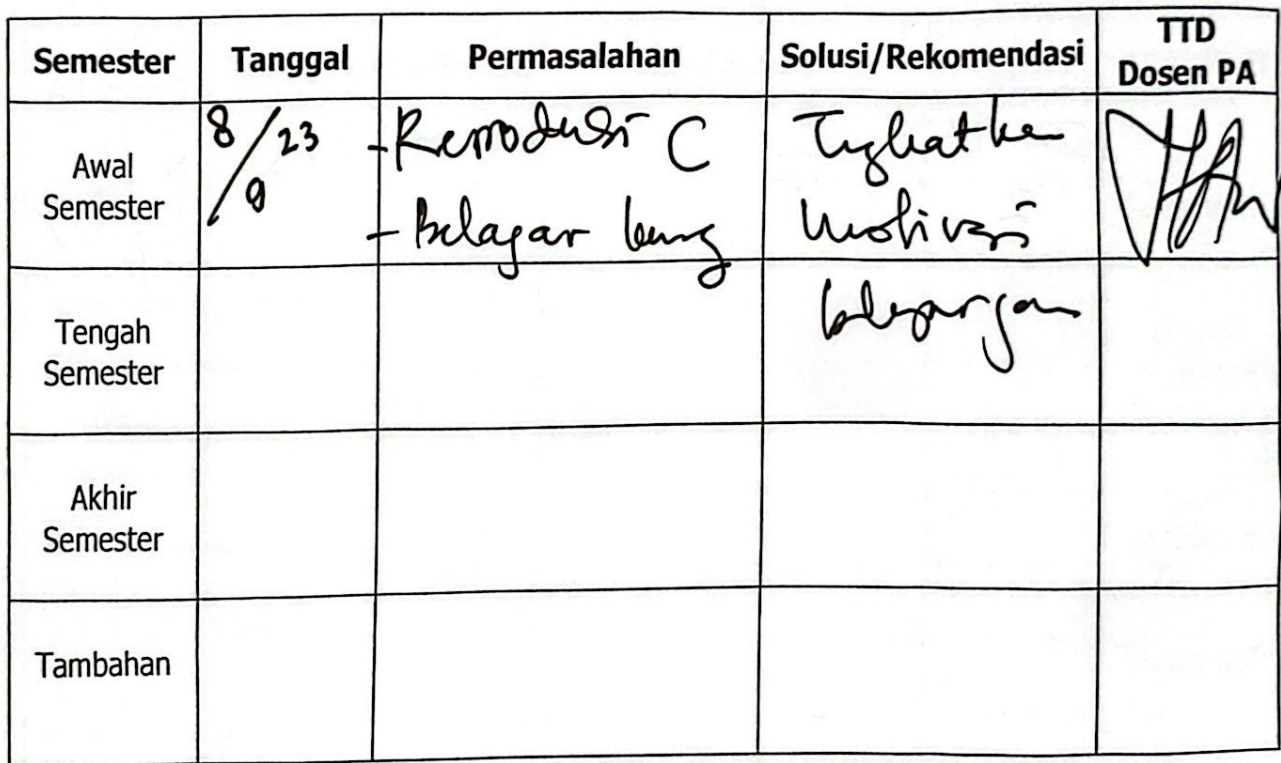 Semester Tanggal Permasalahan Solusi/Rekomendasi TTD Dosen PA
Awal Semester 8/9 23
- Reproduksi C
- Belajar kurang
Tingkatkan
motivasi
Tengah Semester
Akhir Semester
Tambahan